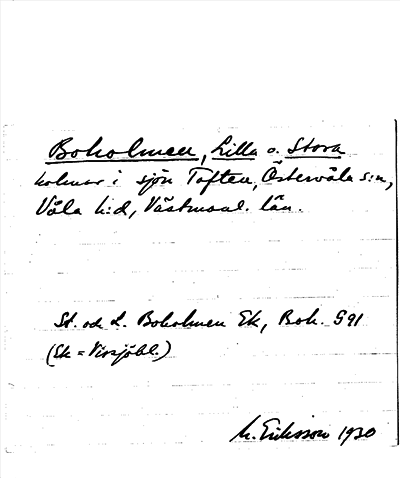 Boholmen, Lilla o. Stora
holmar i sjön Toften, Östervåla s:n,
Våla h:d, Västmanl. län.
St. och L. Boholmen Ek, Boh. S 91
(Ek = Vissjöbl.)
M. Eriksson 1930